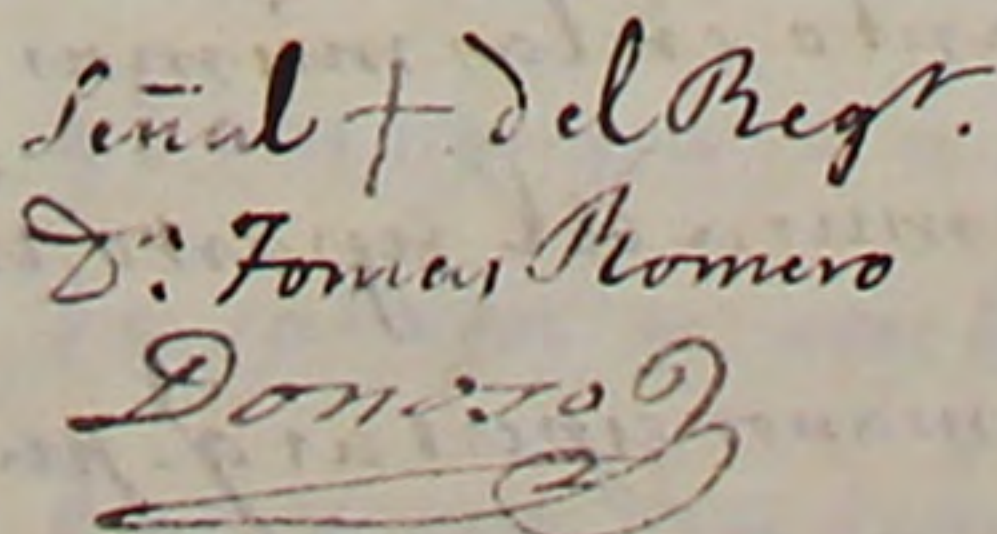 Señal + del Regr.
Dn. Tomas Romero
Donoso